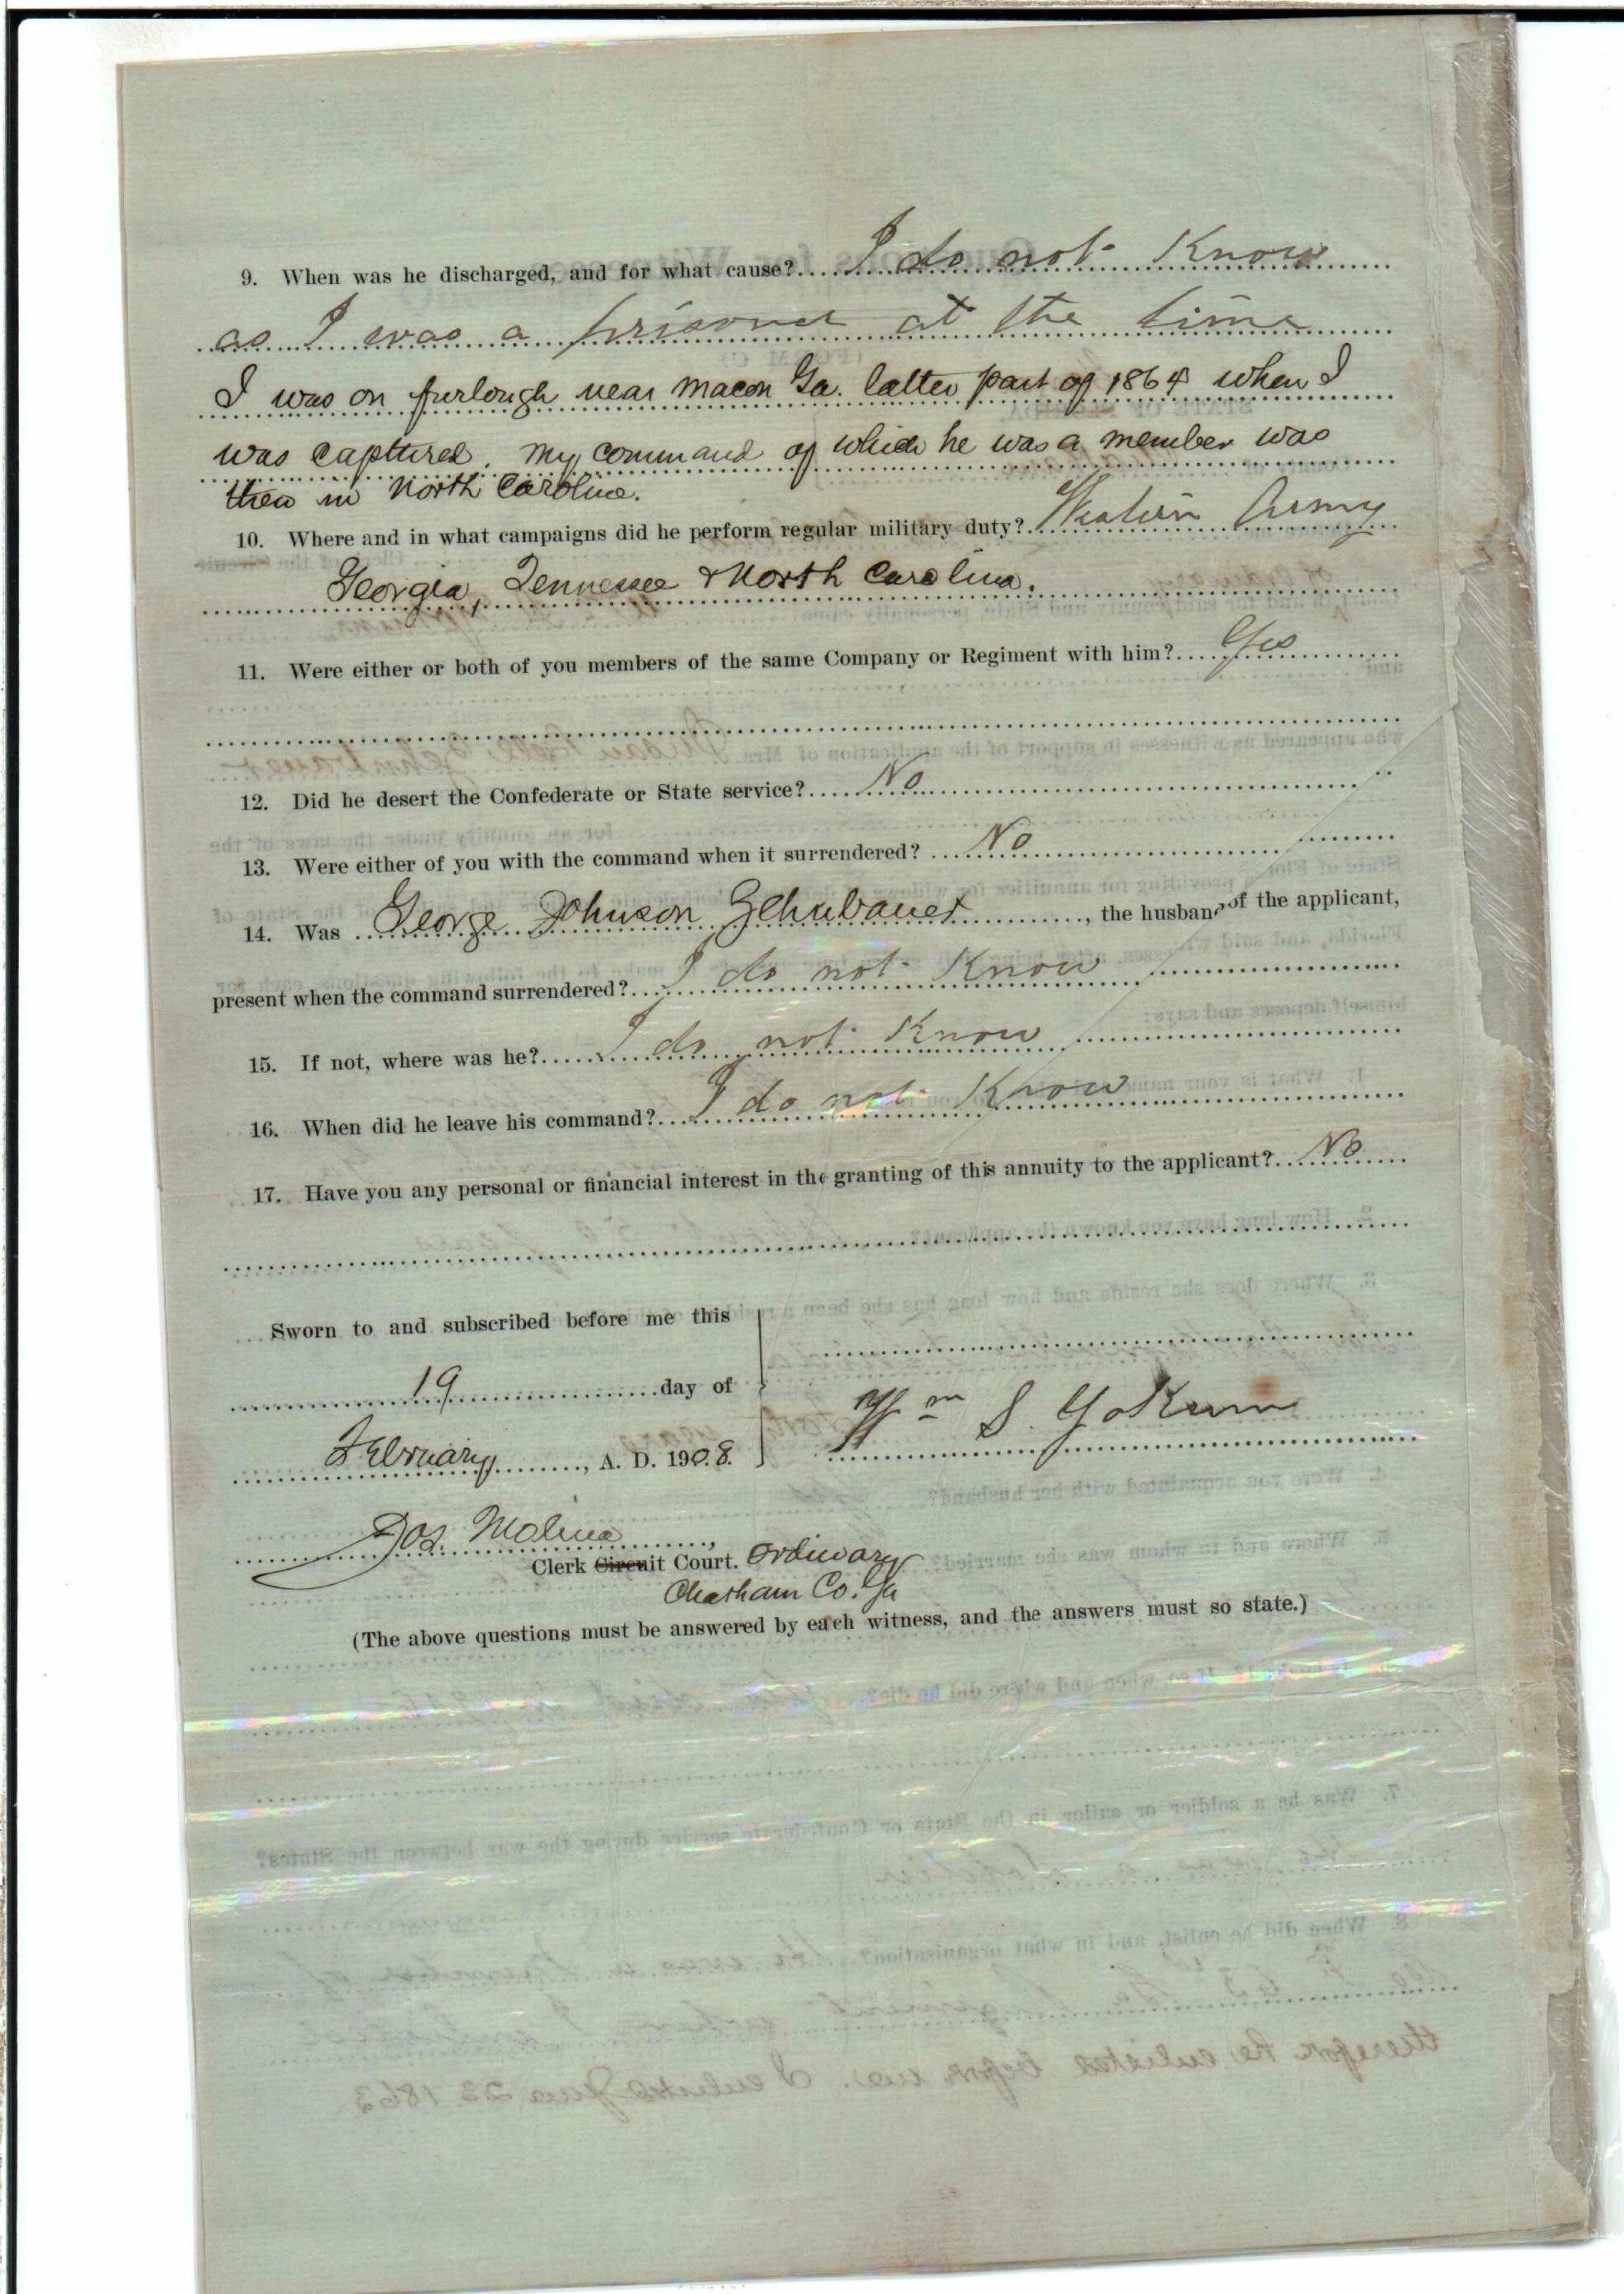 9. When was he discharged, and for what cause? I do not Know
as I was a prisoner at the time
I was on furlough near Macon Ga. latter part of 1864 when I
was capttured. My command of which he was a member was
then in North Carolina.
10. Where and in what campaigns did he perform regular military duty? Western Army
Georgia, Tennessee & North Carolina.
11. Were either or both of you members of the same Company or Regiment with him? Yes
12. Did he desert the Confederate or State service? No
13. Were either of you with the command when it surrendered? No
14. Was George Johnson Gehubauer, the husband of the applicant,
present when the command surrendered? I do not Know
15. If not, where was he? I do not Know
16. When did he leave his command? I do not Know
17. Have you any personal or financial interest in the granting of this annuity to the applicant? No
Sworn to and subscribed before me this
19 day of
February, A. D. 1908.
Wm S. Yokum
Jos. Molina,
Clerk Circuit Court. Ordinary
Chatham Co. Ga
(The above questions must be answered by each witness, and the answers must so state.)